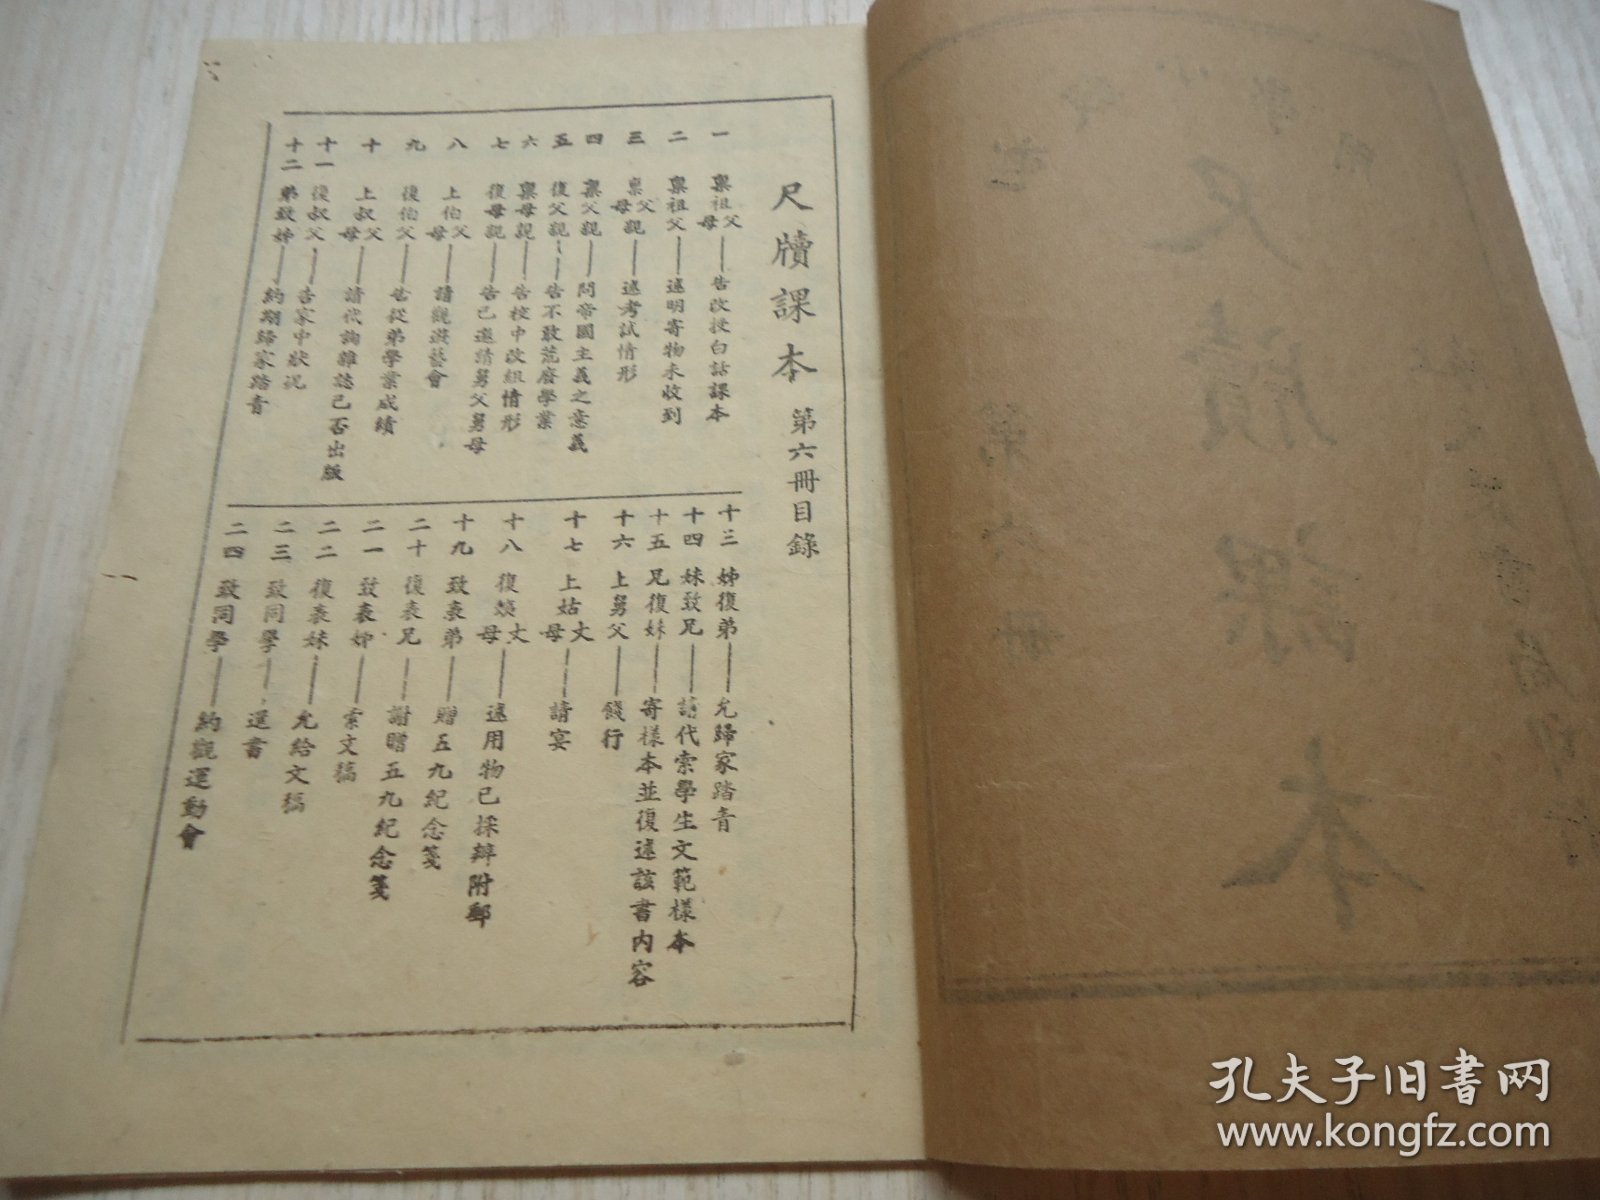 尺牘課本 第六冊目錄
一 稟祖父母——告改授白話課本
二 稟祖父——述明寄物未收到
三 稟父母親——述考試情形
四 稟父親——問帝國主義之意義
五 復父親——告不敢荒廢學業
六 稟母親——告校中改組情形
七 復母親——告已邀請舅父舅母
八 上伯父母——請觀遊藝會
九 復伯父——告從弟學業成績
十 上叔父母——請代詢雜誌已否出版
十一 復叔父——告家中狀況
十二 弟致姊——約期歸家踏青
十三 姊復弟——允歸家踏青
十四 妹致兄——請代索學生文範樣本
十五 兄復妹——寄樣本並復述該書內容
十六 上舅父——餞行
十七 上姑丈母——請宴
十八 復姨丈母——述用物已採辦附郵
十九 致表弟——贈五九紀念箋
二十 復表兄——謝贈五九紀念箋
二一 致表姊——索文稿
二二 復表妹——允給文稿
二三 致同學——還書
二四 致同學——約觀運動會
尺牘課本
第六冊
孔夫子旧书网
www.kongfz.com